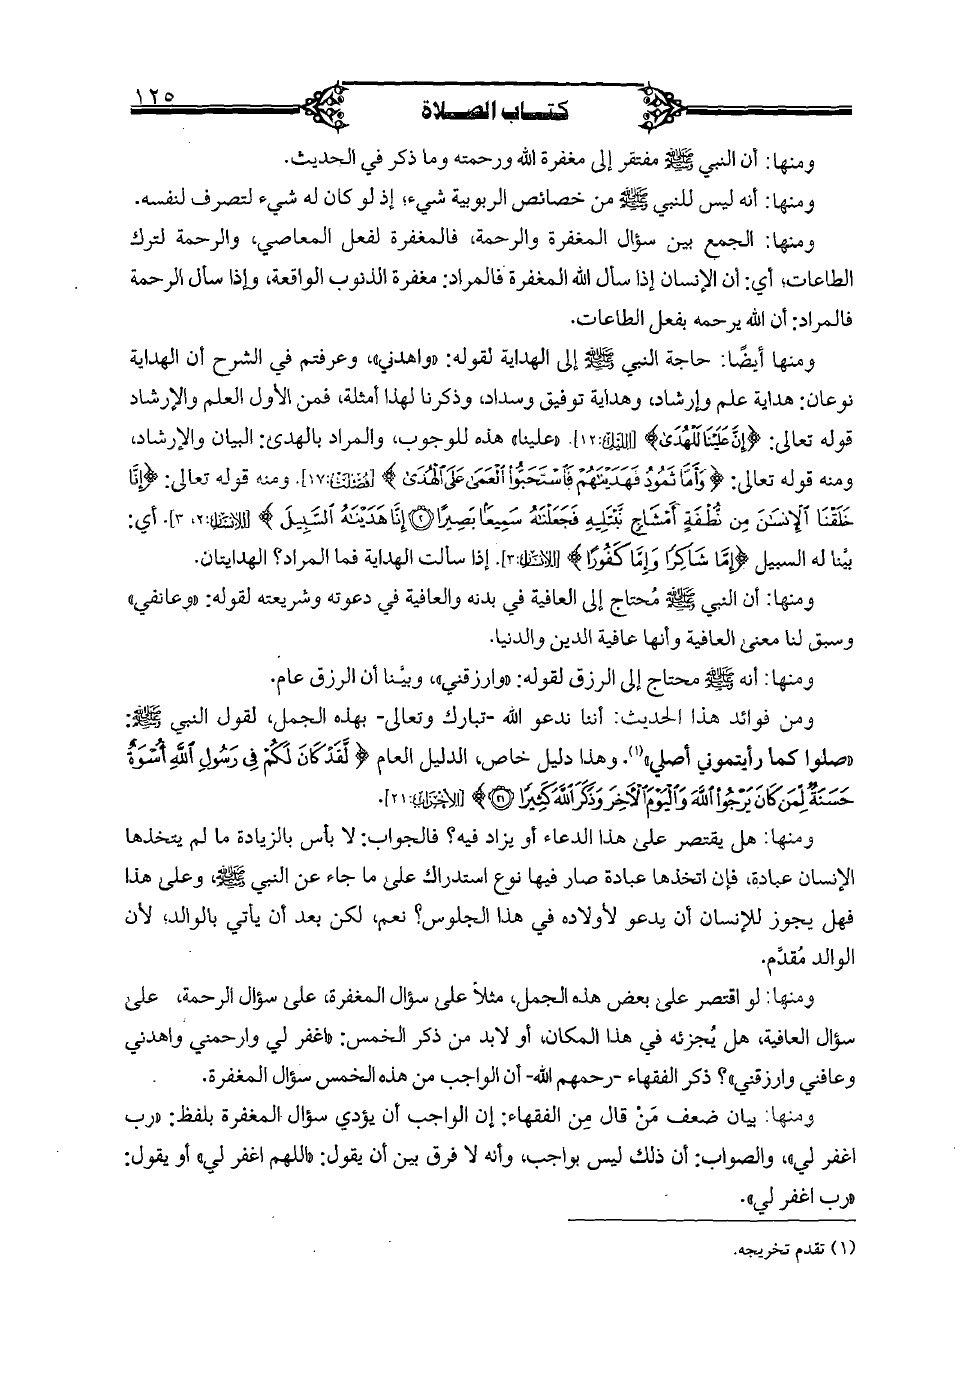 ١٢٥
كتاب الصلاة
ومنها: أن النبي ﷺ مفتقر إلى مغفرة الله ورحمته وما ذكر في الحديث.
ومنها: أنه ليس للنبي ﷺ من خصائص الربوبية شيء؛ إذ لو كان له شيء لتصرف لنفسه.
ومنها: الجمع بين سؤال المغفرة والرحمة، فالمغفرة لفعل المعاصي، والرحمة لترك
الطاعات؛ أي: أن الإنسان إذا سأل الله المغفرة فالمراد: مغفرة الذنوب الواقعة، وإذا سأل الرحمة
فالمراد: أن الله يرحمه بفعل الطاعات.
ومنها أيضًا: حاجة النبي ﷺ إلى الهداية لقوله: «واهدني»، وعرفتم في الشرح أن الهداية
نوعان: هداية علم وإرشاد، وهداية توفيق وسداد، وذكرنا لهذا أمثلة، فمن الأول العلم والإرشاد
قوله تعالى: ﴿إِنَّ عَلَيْنَا لَلْهُدَىٰ﴾ [الليل: ١٢]. «علينا» هذه للوجوب، والمراد بالهدى: البيان والإرشاد،
ومنه قوله تعالى: ﴿وَأَمَّا ثَمُودُ فَهَدَيْنَٰهُمْ فَٱسْتَحَبُّوا۟ ٱلْعَمَىٰ عَلَى ٱلْهُدَىٰ﴾ [فصلت: ١٧]. ومنه قوله تعالى: ﴿إِنَّا
خَلَقْنَا ٱلْإِنسَٰنَ مِن نُّطْفَةٍ أَمْشَاجٍ نَّبْتَلِيهِ فَجَعَلْنَٰهُ سَمِيعًۢا بَصِيرًا ﴿٢﴾ إِنَّا هَدَيْنَٰهُ ٱلسَّبِيلَ﴾ [الإنسان: ٢، ٣]. أي:
بيَّنا له السبيل ﴿إِمَّا شَاكِرًا وَإِمَّا كَفُورًا﴾ [الإنسان: ٣]. إذا سألت الهداية فما المراد؟ الهدايتان.
ومنها: أن النبي ﷺ مُحتاج إلى العافية في بدنه والعافية في دعوته وشريعته لقوله: «وعانفي»
وسبق لنا معنى العافية وأنها عافية الدين والدنيا.
ومنها: أنه ﷺ محتاج إلى الرزق لقوله: «وارزقني»، وبيَّنا أن الرزق عام.
ومن فوائد هذا الحديث: أننا ندعو الله -تبارك وتعالى- بهذه الجمل، لقول النبي ﷺ:
«صلوا كما رأيتموني أصلي»(١). وهذا دليل خاص، الدليل العام ﴿لَّقَدْ كَانَ لَكُمْ فِى رَسُولِ ٱللَّهِ أُسْوَةٌ
حَسَنَةٌ لِّمَن كَانَ يَرْجُوا۟ ٱللَّهَ وَٱلْيَوْمَ ٱلْءَاخِرَ وَذَكَرَ ٱللَّهَ كَثِيرًا ﴿٢١﴾﴾ [الأحزاب: ٢١].
ومنها: هل يقتصر على هذا الدعاء أو يزاد فيه؟ فالجواب: لا بأس بالزيادة ما لم يتخذها
الإنسان عبادة، فإن اتخذها عبادة صار فيها نوع استدراك على ما جاء عن النبي ﷺ، وعلى هذا
فهل يجوز للإنسان أن يدعو لأولاده في هذا الجلوس؟ نعم، لكن بعد أن يأتي بالوالد؛ لأن
الوالد مُقدَّم.
ومنها: لو اقتصر على بعض هذه الجمل، مثلاً على سؤال المغفرة، على سؤال الرحمة، على
سؤال العافية، هل يُجزئه في هذا المكان، أو لابد من ذكر الخمس: «اغفر لي وارحمني واهدني
وعافني وارزقني»؟ ذكر الفقهاء -رحمهم الله- أن الواجب من هذه الخمس سؤال المغفرة.
ومنها: بيان ضعف مَنْ قال مِن الفقهاء: إن الواجب أن يؤدي سؤال المغفرة بلفظ: «رب
اغفر لي»، والصواب: أن ذلك ليس بواجب، وأنه لا فرق بين أن يقول: «اللهم اغفر لي» أو يقول:
«رب اغفر لي».
(١) تقدم تخريجه.